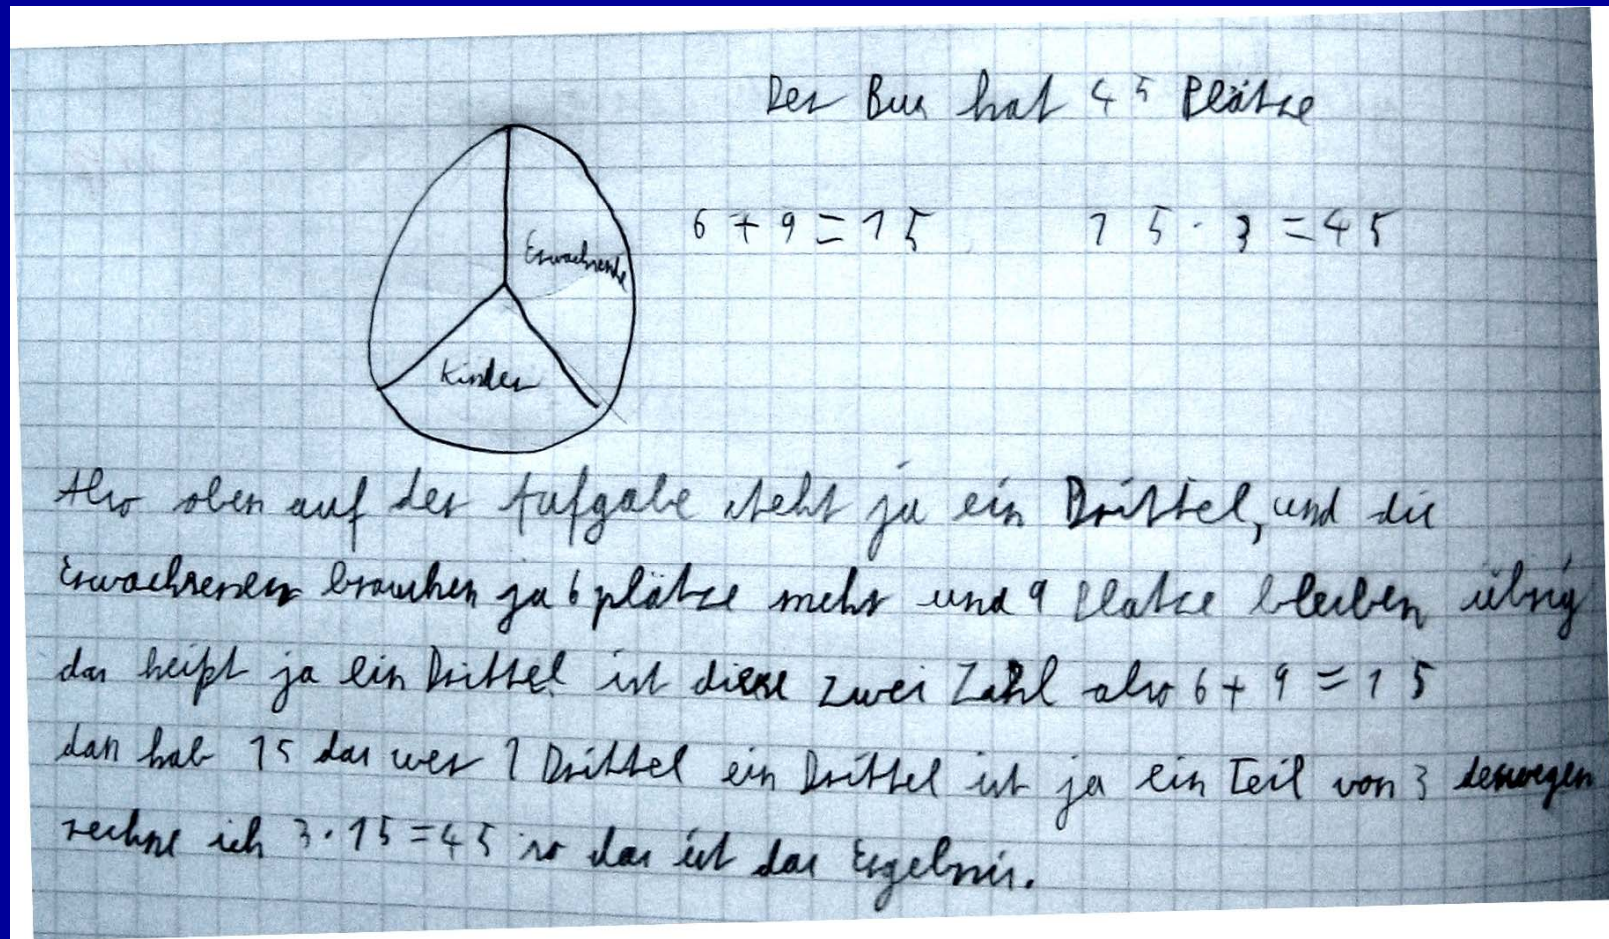 Der Bus hat 45 Plätze
6 + 9 = 15 15 · 3 = 45
Erwachsende
Kinder
Also oben auf der Aufgabe steht ja ein Drittel, und die
Erwachsenen brauchen ja 6 plätze mehr und 9 Platze bleiben übrig
das heißt ja ein Drittel ist diese zwei Zahl also 6 + 9 = 15
dan hab 15 das wer 1 Drittel ein Drittel ist ja ein Teil von 3 deswegen
rechne ich 3 · 15 = 45 so das ist das Ergebnis.